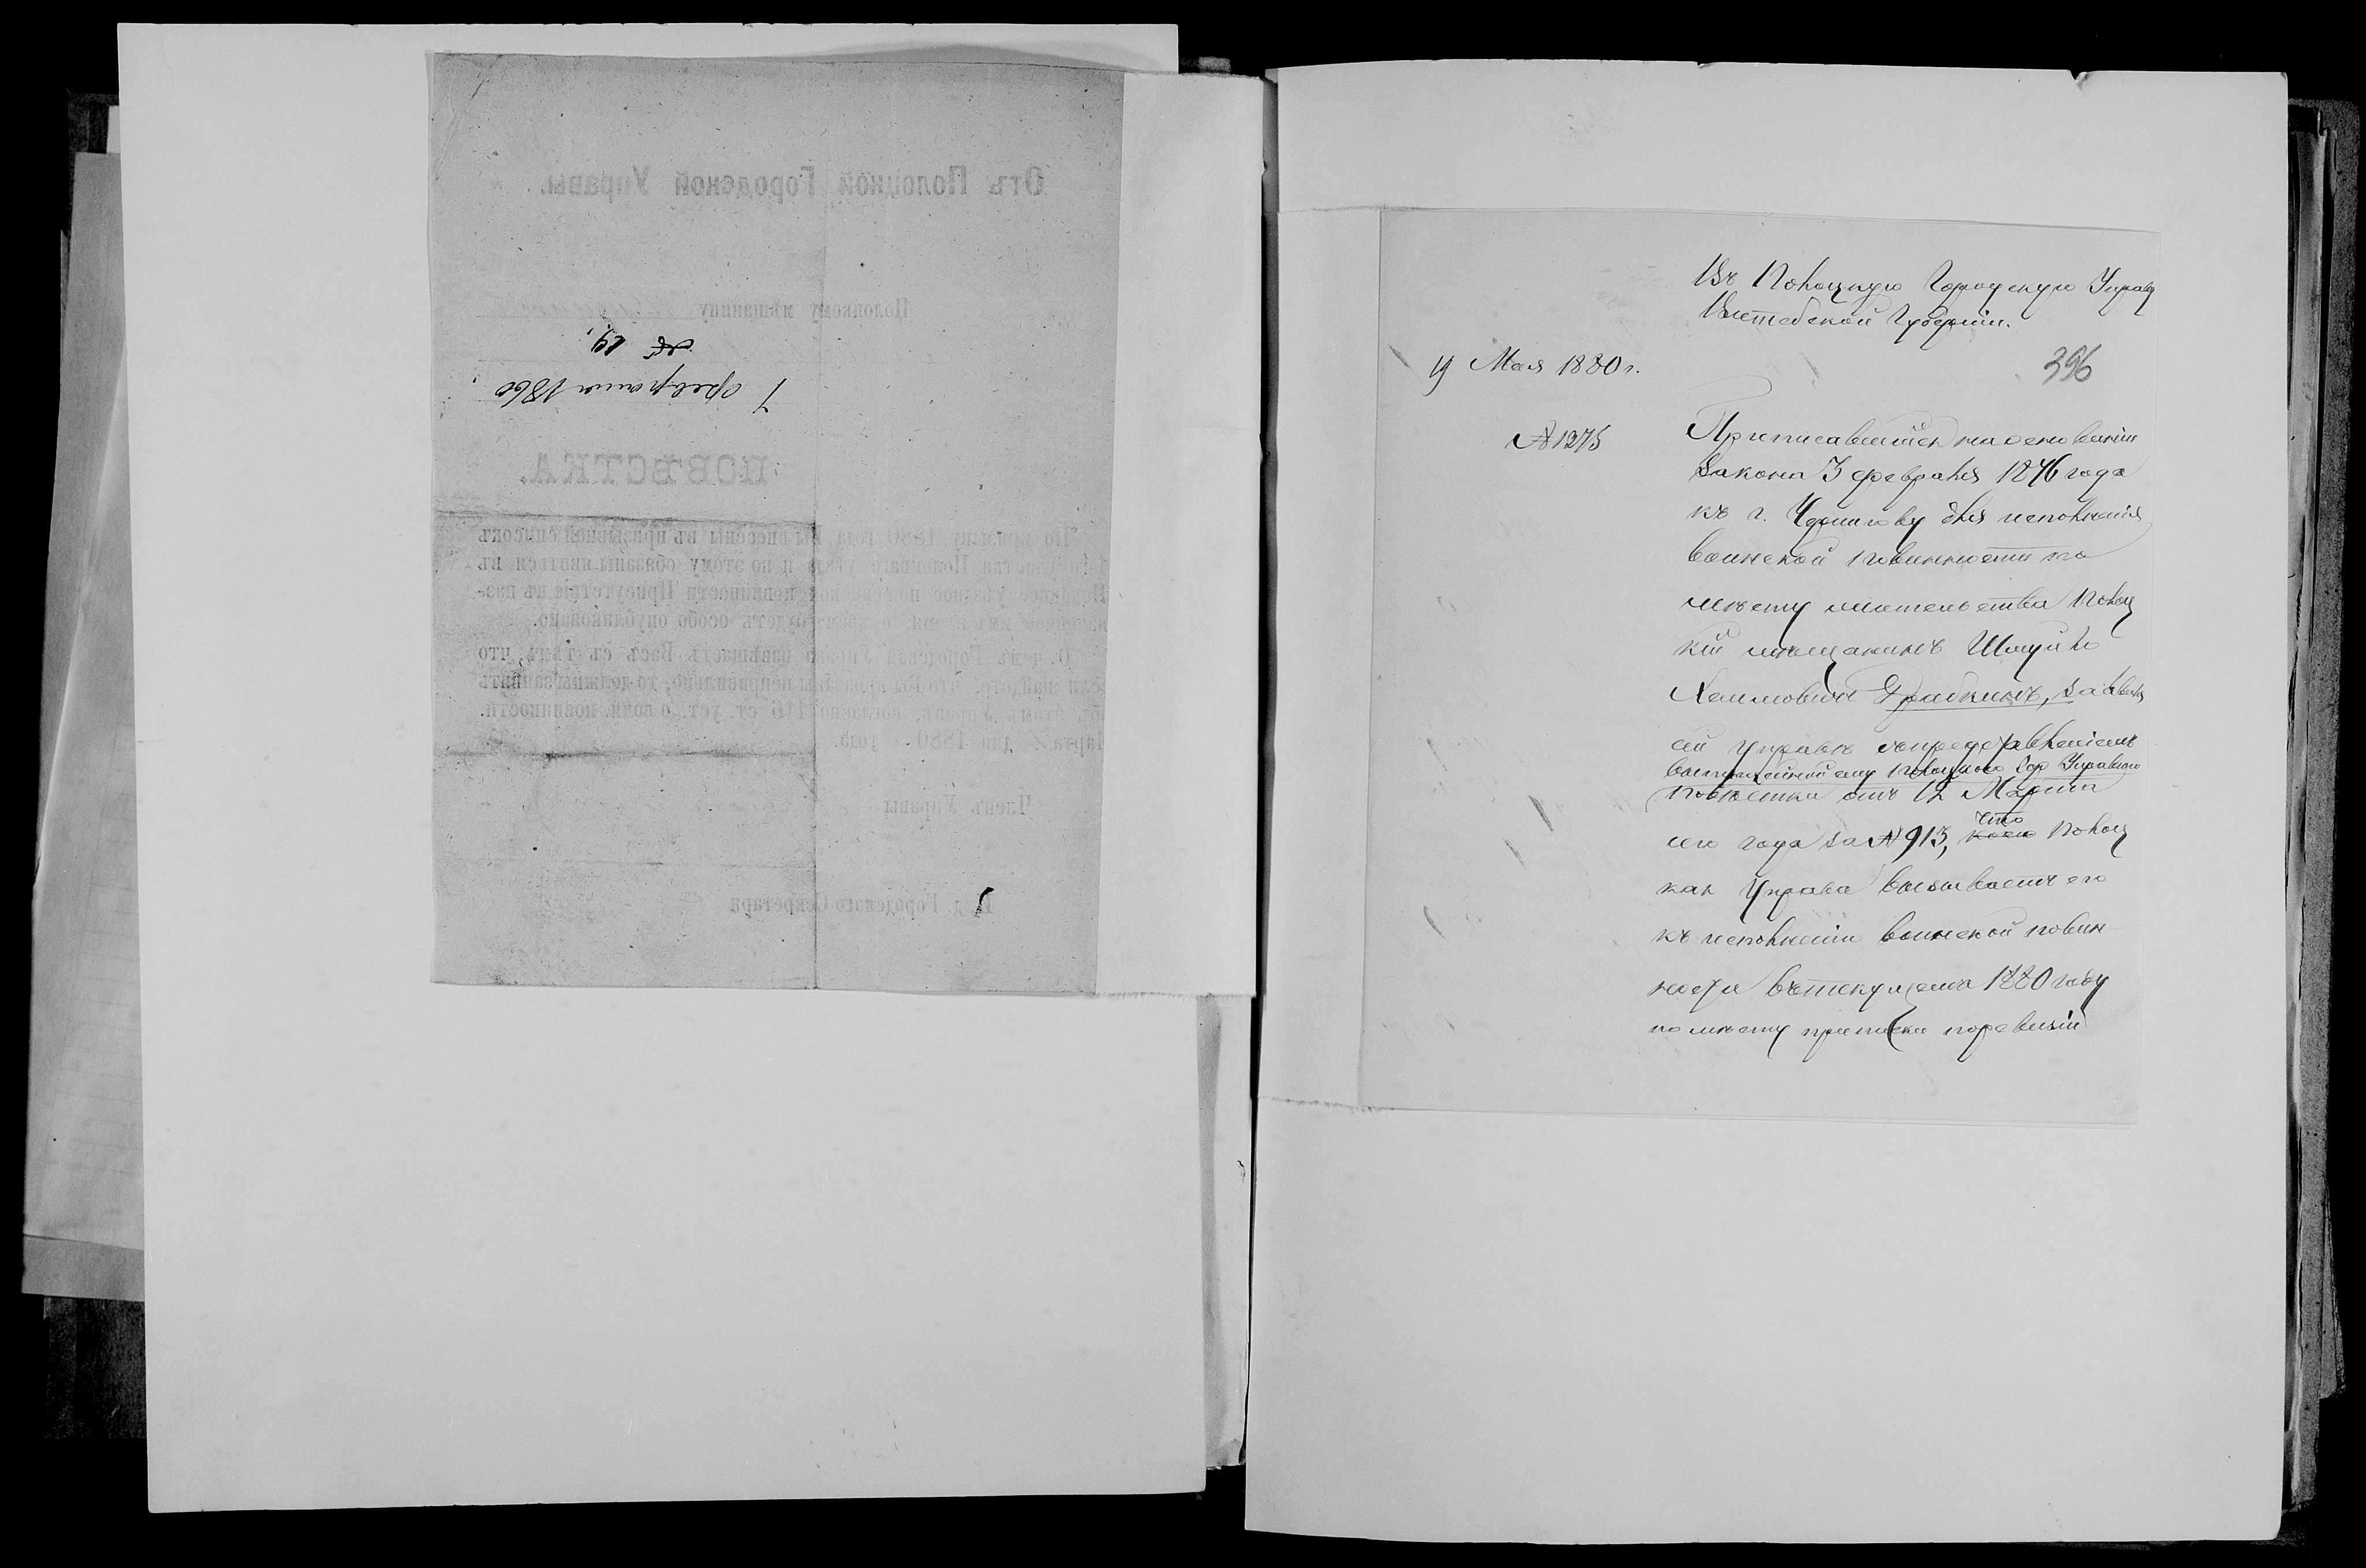 Отъ Полоцкой Городской Управы.
Полоцкому мѣщанину
№ 19.
7 февраля 1860
ПОВѢСТКА.
По призыву 1880 года Вы внесены въ призывной списокъ
участка Полоцкаго уѣзда и по этому обязаны явиться въ
уѣздное по воинской повинности Присутствіе въ наз-
время, о чемъ будетъ особо опубликовано.
О чемъ Городская Управа извѣщаетъ Васъ съ тѣмъ, что
если найдете, что Вы призваны неправильно, то должны заявить
объ этомъ Управѣ, согласно 116 ст. уст. о воин. повинности.
Марта дня 1880 года.
Членъ Управы
И. д. Городскаго Секретаря
Въ Полоцкую Городскую Управу
Витебской Губерніи.
19 Мая 1880 г.
396
№ 1275
Приписавшійся на основаніи
закона 3 февраля 1876 года
къ г. Чернигову для исполненія
воинской повинности по
мѣсту жительства Полоц
кій мѣщанинъ Шмуйло
Хаимовичъ Драбкинъ, заявилъ
сей Управѣ съ представленіемъ
ему Полоцкою Гор Управою
повѣстки отъ 12 Марта
сего года за № 913, что Полоц
кая Управа вызываетъ его
къ исполненію воинской повин-
ности въ текущемъ 1880 году
по мѣсту приписки по ревизіи